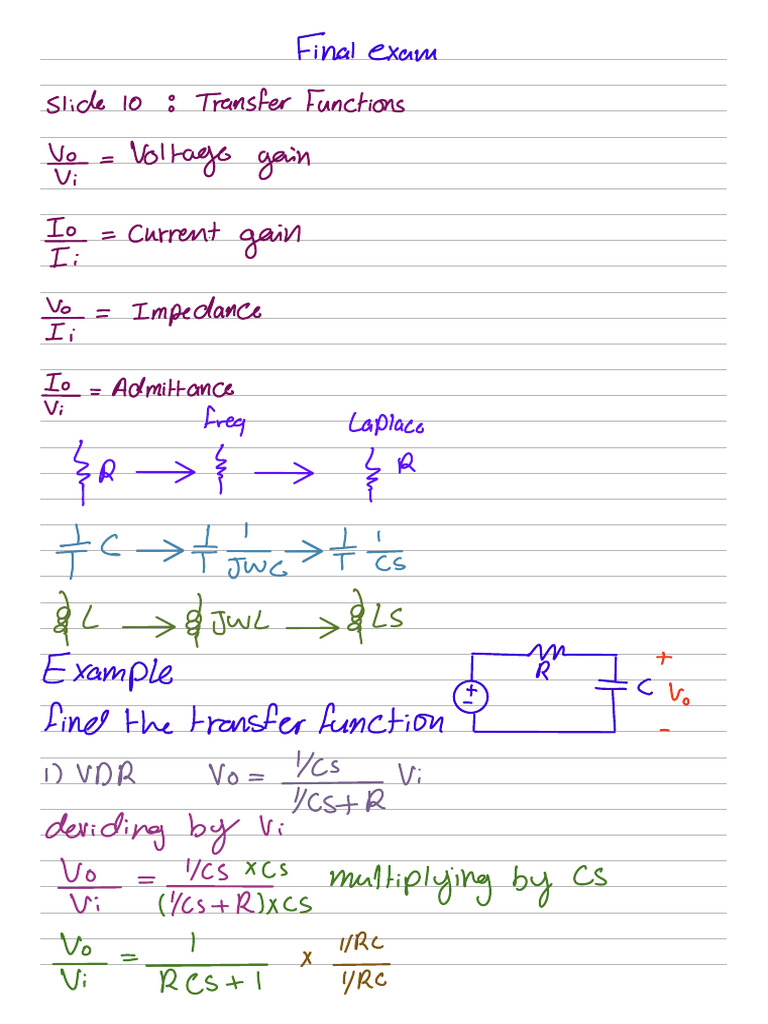 Final exam
Slide 10 : Transfer Functions
Vo/Vi = Voltage gain
Io/Ii = Current gain
Vo/Ii = Impedance
Io/Vi = Admittance
freq Laplace
R → → R
C → 1/JWC → 1/CS
L → JWL → LS
Example
R
+ - C + Vo -
find the transfer function
1) VDR Vo = (1/CS)/(1/CS + R) Vi
deviding by Vi
Vo/Vi = (1/CS × CS)/((1/CS + R) × CS) multiplying by CS
Vo/Vi = 1/(RCS + 1) × (1/RC)/(1/RC)